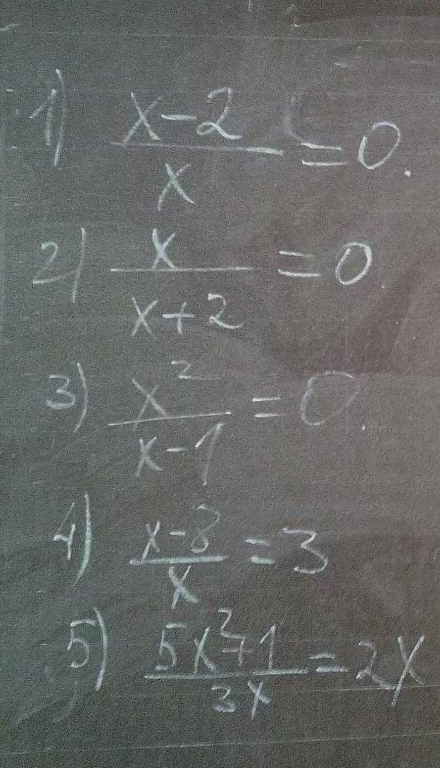 1) (x-2)/x = 0.
2) x/(x+2) = 0
3) x²/(x-1) = 0.
4) (x-8)/x = 3
5) (5x²+1)/(3x) = 2x